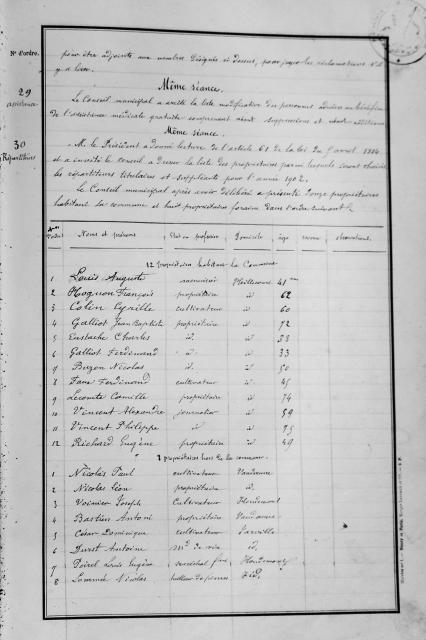 N° d'ordre.
pour être adjoints aux membres désignés ci dessus, pour juger les réclamations s'il
y a lieu.
Même séance.
29
assistance
Le Conseil municipal a arrêté la liste modificative des personnes admises au bénéfice
de l'assistance médicale gratuite comprenant néant suppressions et néant additions
Même séance.
30
Répartiteurs
M. le Président a donné lecture de l'article 61 de la loi du 5 avril 1884
et a invité le conseil à dresser la liste des propriétaires parmi lesquels seront choisis
les répartiteurs titulaires et suppléants pour l'année 1902.
Le Conseil municipal après avoir délibéré a présenté douze propriétaires
habitant la commune et huit propriétaires forains dans l'ordre suivant
Noms et prénoms Domicile âge observations
12 propriétaires habitant la Commune
1 Louis Auguste 41 ans
2 Hognon François propriétaire id 62
3 Colin Cyrille cultivateur id 60
4 Galliot Jean Baptiste propriétaire id 72
5 Eustache Charles id. id
6 Galliot Ferdinand id. id 33
7 Bazon Nicolas id. id 50
8 Ferdinand cultivateur id 45
9 Lecomte Camille propriétaire id 74
10 Vincent Alexandre journalier id 59
11 Vincent Philippe id id
12 Richard Eugène propriétaire id 49
propriétaires hors de la commune
1 Nicolas Paul cultivateur
2 Nicolas Léon propriétaire id.
3 Voinier Joseph Cultivateur
4 Bastien Antoine propriétaire
5 César Dominique cultivateur
6 Duret Antoine md de vin id.
7 Poirel Louis Eugène maréchal
8 Nicolas tailleur de pierres id.